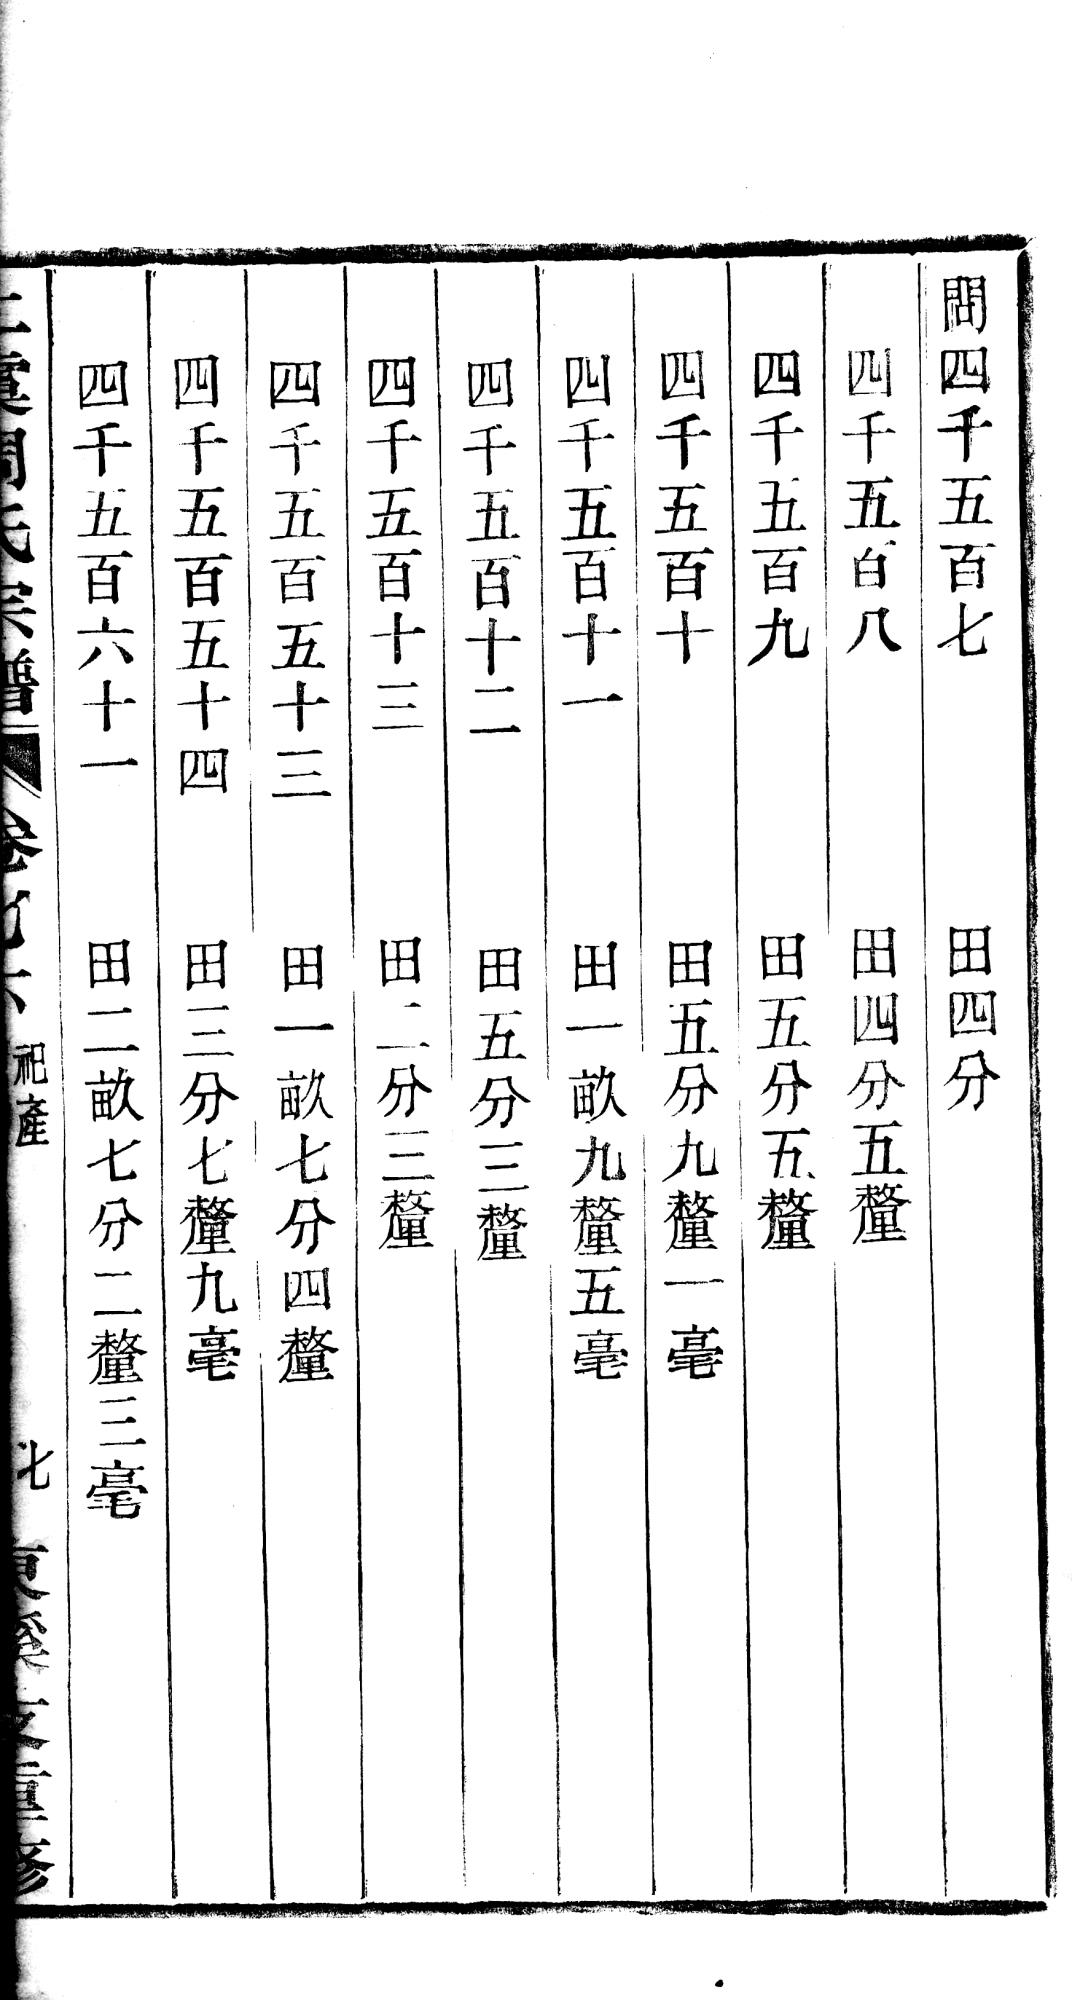 問四千五百七　田四分
四千五百八　田四分五釐
四千五百九　田五分五釐
四千五百十　田五分九釐一毫
四千五百十一　田一畝九釐五毫
四千五百十二　田五分三釐
四千五百十三　田二分三釐
四千五百五十三　田一畝七分四釐
四千五百五十四　田三分七釐九毫
四千五百六十一　田二畝七分二釐三毫
虞周氏宗譜　卷　祀產　東溪支重修